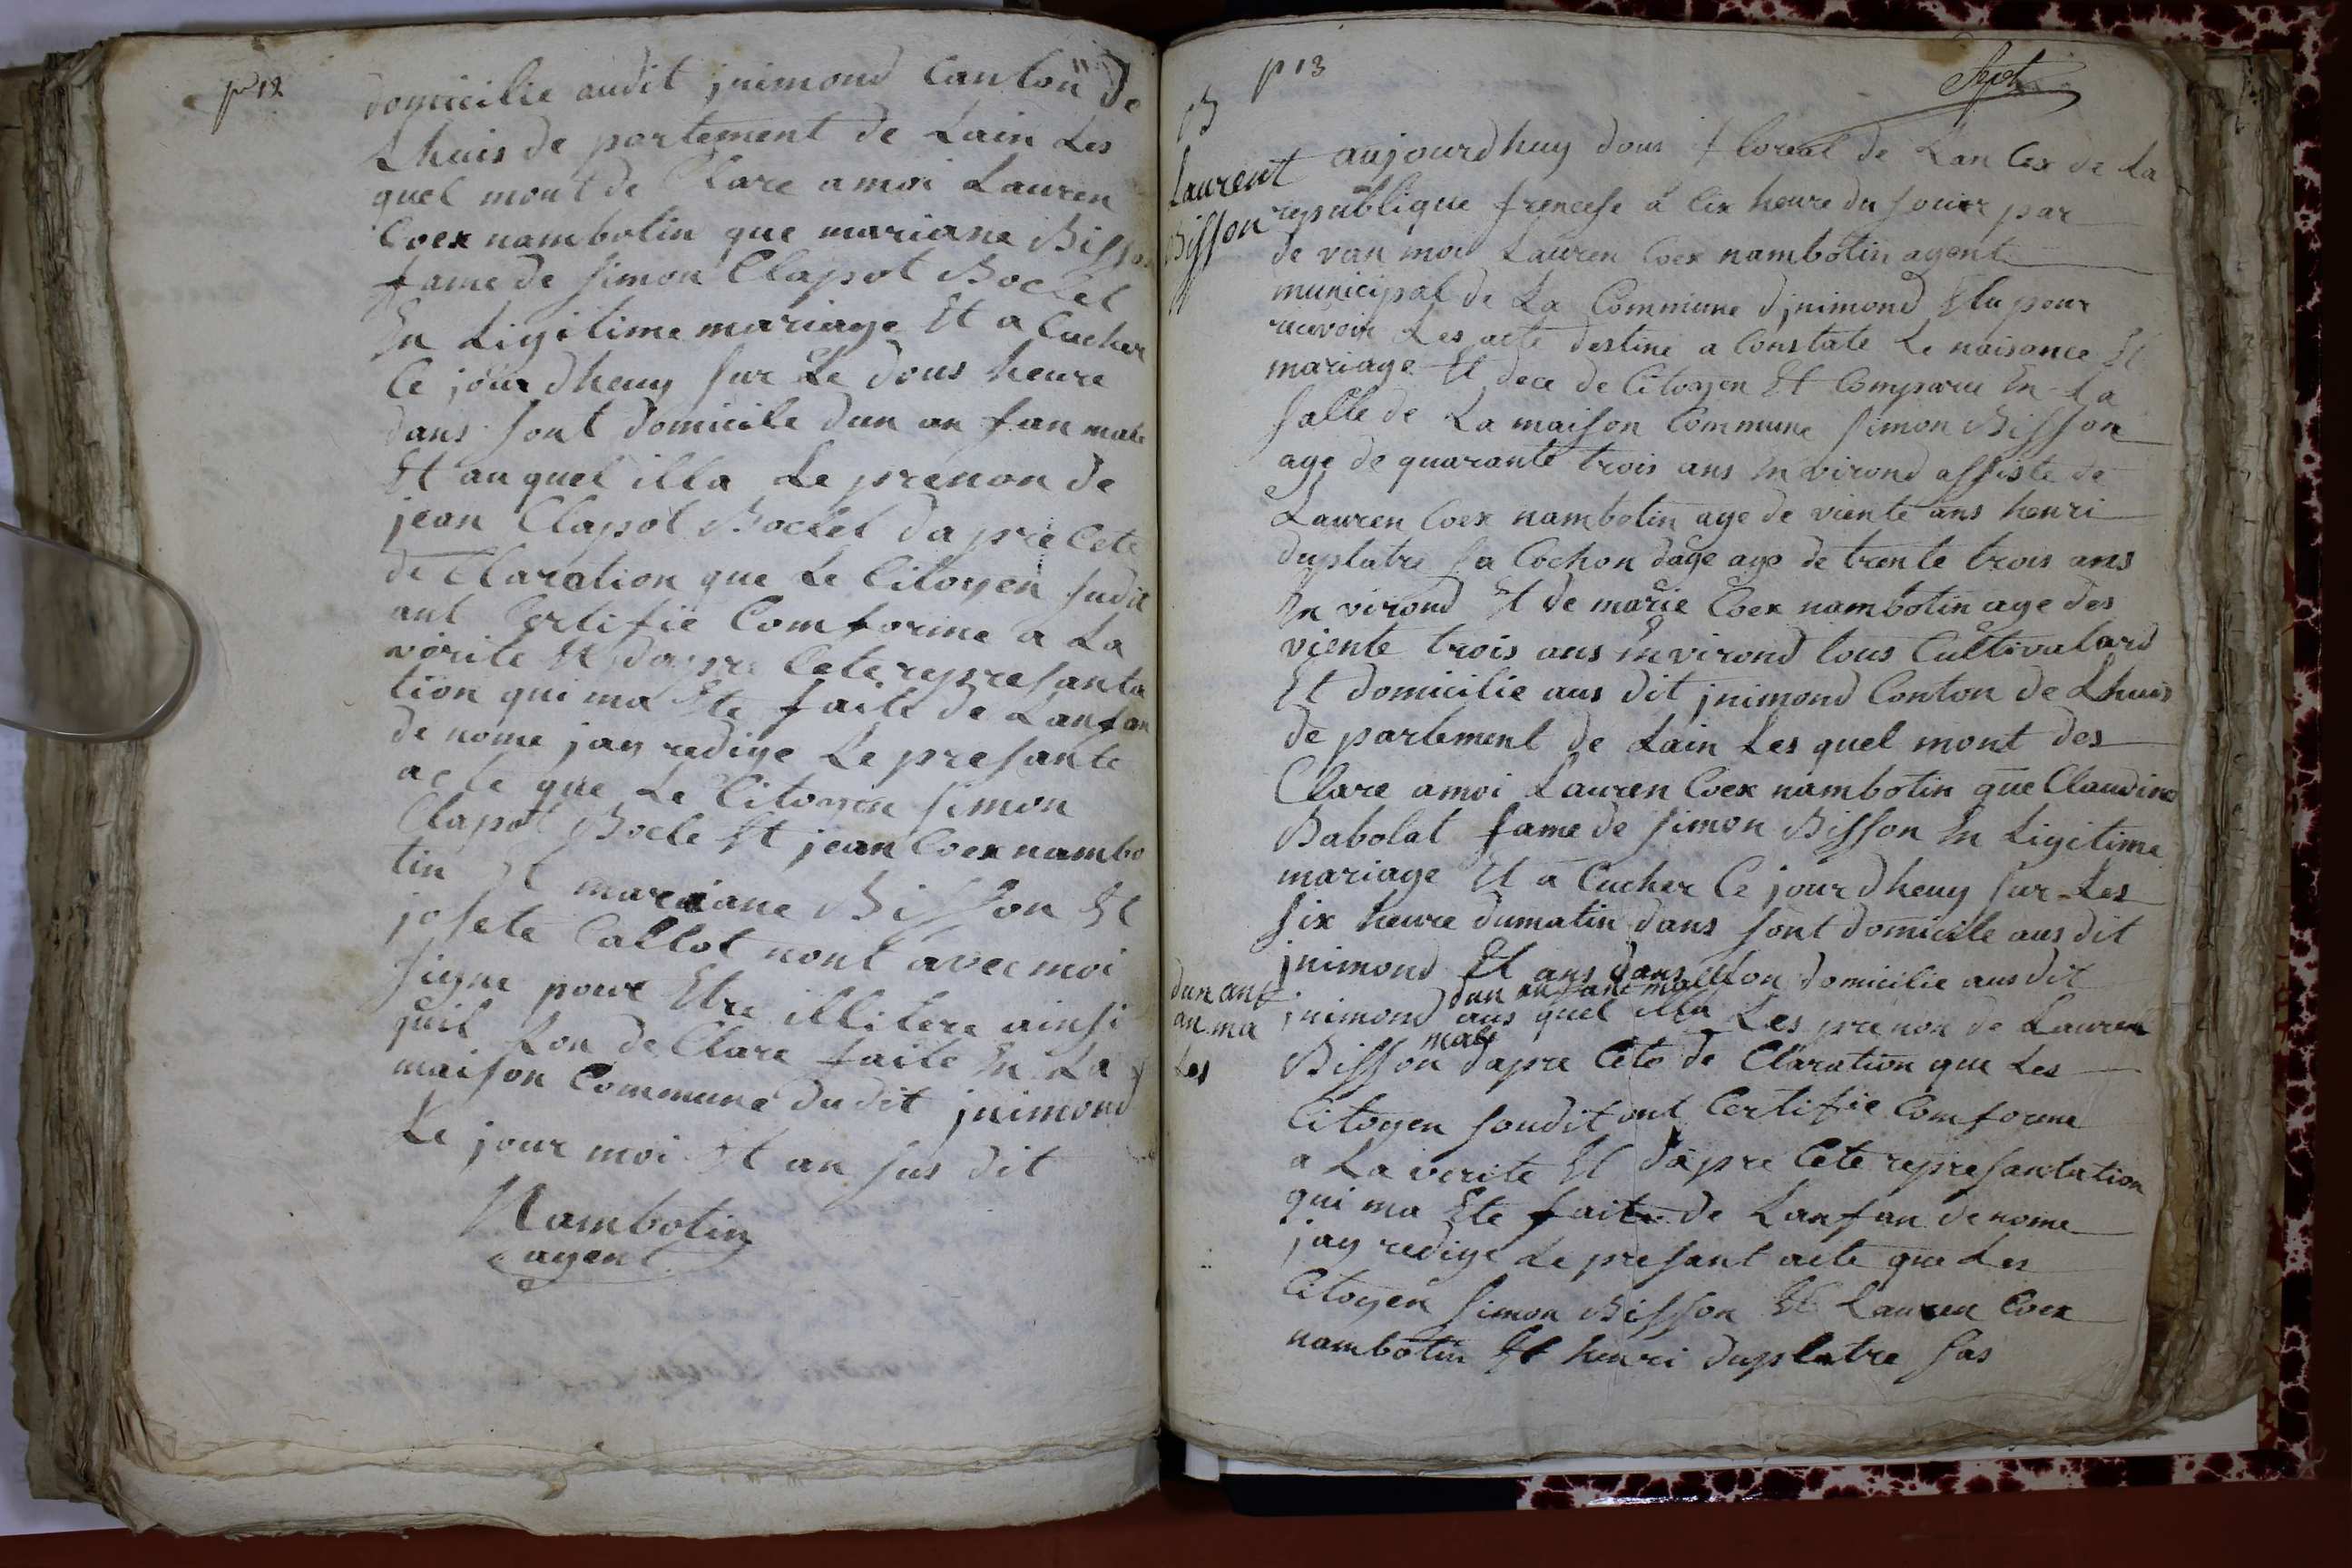 p 12
domicilie audit jnimond Canton de
Lhuis de partement de Lain Les
quel mont de Clare amoi Lauren
Coex nambotin que mariane Bisson
fame de simon Clapot Boclet
En Ligitime mariage Et a Cucher
Ce jour dheuy sur Le dous heure
dans sont domicile dun an fan male
Et au quel illa Le prenon de
jean Clapot Boclet dapre Cete
de Claration que Le Citoyen sudit
ant Certifie Comforme a La
vorite Et dapre Cete represanta
tion qui ma Ete faite de Lanfan
de nome jay redige Le presante
acte que Le Citoyen simon
Clapot Bocle Et jean Coex nambo
tin Et mariane Bisson Et
josete Callot nont avec moi
signe pour Etre illitere ainsi
quil Lon de Clare faite En La
maison Commune dudit jnimond
Le jour moi Et an sus dit
Nambotin
agent
p 13
Sept
13
Laurent
Bisson
aujourdhuy dous floreal de Lan Cex de La
republique francese a Cix heure du souir par
de van moi Lauren Coex nambotin agent
municipal de La Commune djnimond Elu pour
recevoir Les acte destine a Constate Le naisance Et
mariage Et dece de Citoyen Et Comparu En La
salle de La maison Commune simon Bisson
age de quarante trois ans En virond assiste de
Lauren Coex nambotin age de viente ans henri
duplatre sa Cochon dage age de trente trois ans
En virond Et de marie Coex nambotin age des
viente trois ans Environd tous Cultivatard
Et domicilie aus dit jnimond Conton de Lhuis
de partement de Lain Les quel mont des
Clare amoi Lauren Coex nambotin que Claudine
Babolat fame de simon Bisson En Ligitime
mariage Et a Cucher Ce jour dheuy sur Les
six heure dumatin dans sont domicille aus dit
jnimond Et ans dans son domicilie aus dit
dun anfane male
jnimond aus quel illa Les prenon de Laurent
male
Bisson dapre Cete de Claration que Les
dun anf
an ma
Les
Citoyen soudit ont Certifie Comforme
a La verite Et dapre Cete represantation
qui ma Ete faite de Lanfan de nome
jay redige Le presant acte que Les
Citoyen simon Bisson Et Lauren Coex
nambotin Et henri duplatre sas